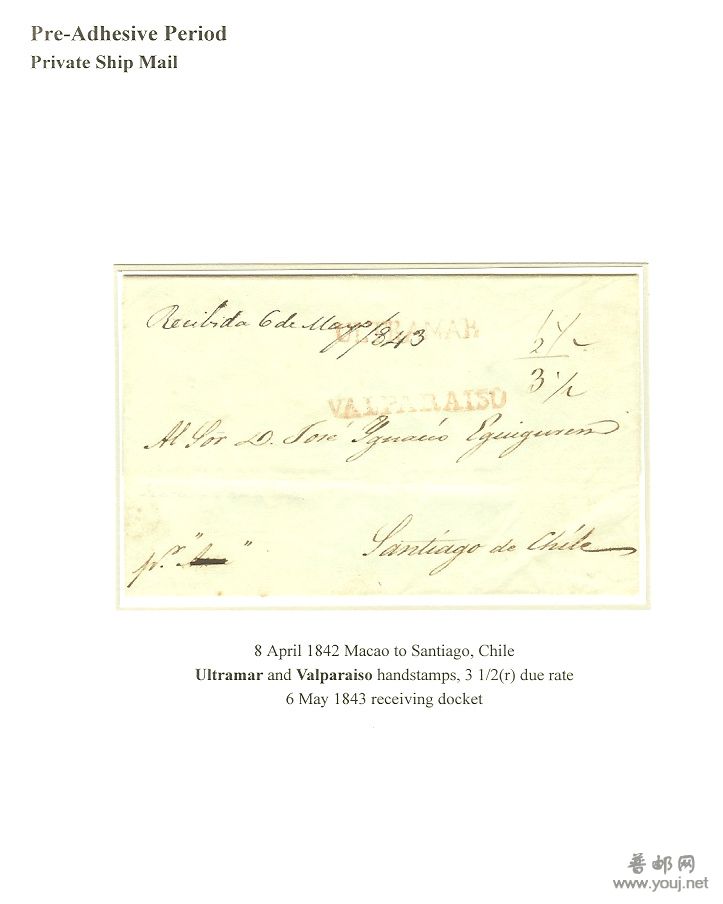 Pre-Adhesive Period
Private Ship Mail
Recibida 6 de Mayo/1843
ULTRAMAR
1/2
3 1/2
VALPARAISO
Al Sor D. José Ygnacio Eguiguren
pr. " "
Santiago de Chile
8 April 1842 Macao to Santiago, Chile
Ultramar and Valparaiso handstamps, 3 1/2(r) due rate
6 May 1843 receiving docket
普邮网
www.youj.net